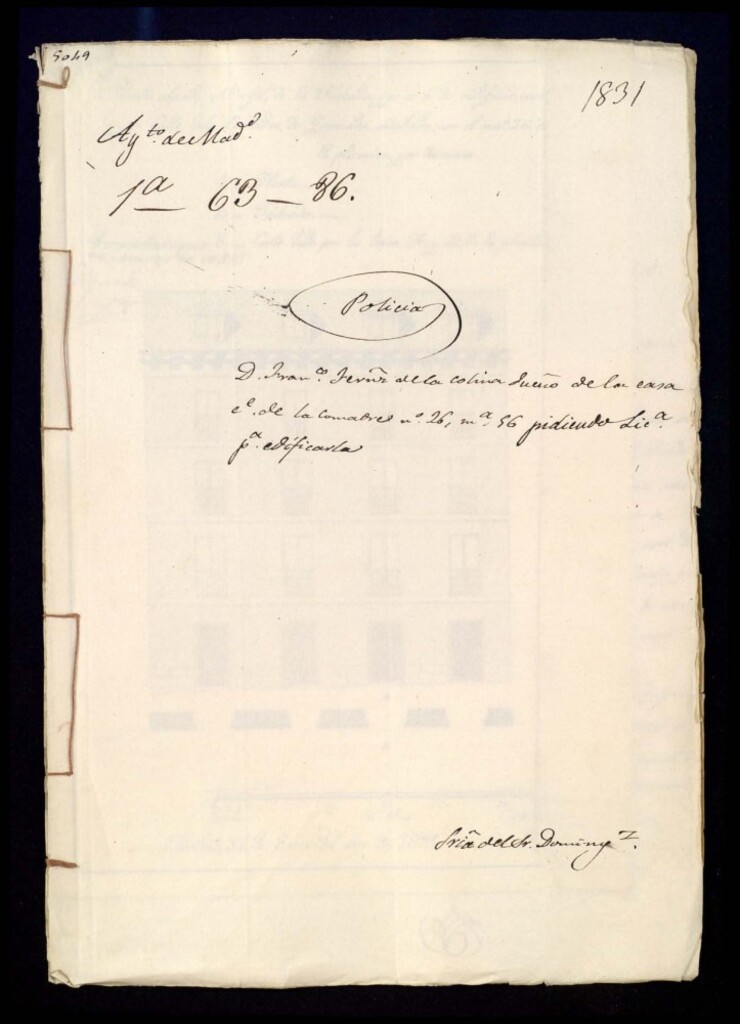 5049
1831
Ay.to de Mad.d
1.a 63-86.
Policia
D. Fran.co Fern.z de la Colina Dueño de la casa
c.e de la Comadre n.o 26, m.a 56 pidiendo Lic.a
p.a edificarla
Sria del Sr. Doming.z